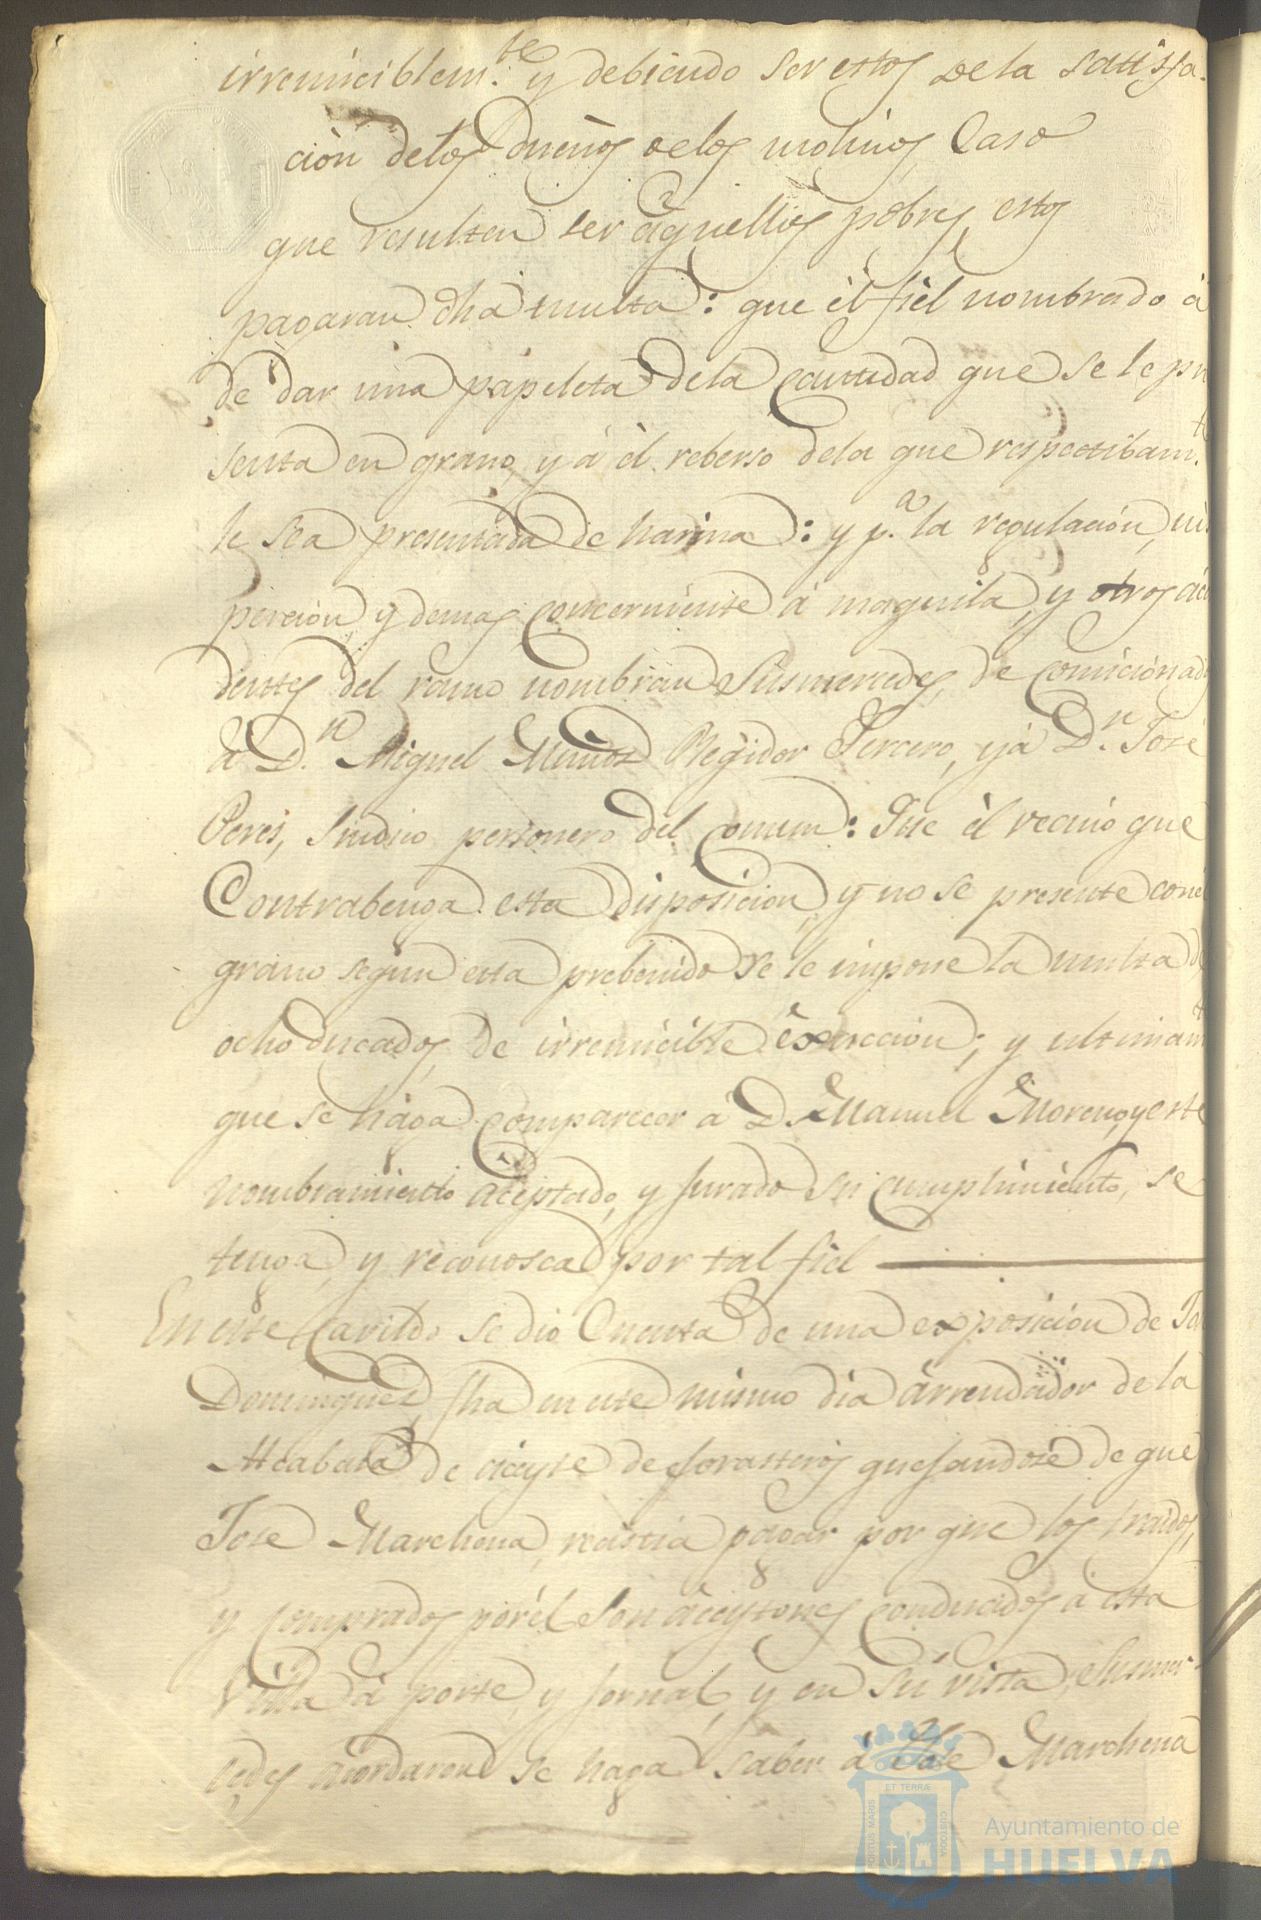 irremiciblem.te y debiendo ser estos de la satisfa-
ción delos dueños delos molinos, Caso
que resulten ser aquellos pobres, estos
pagaran dha multa: que él fiel nombrado á
de dar una papeleta dela Cantidad que se le pre
senta en grano, y á él reberso dela que respectibam.te
le sea presentada de harina: y p.a la regulación,
perción y demas Concerniente á maquila, y otros áci
dentes del ramo nombran Susmercedes, de Comicionado
á D.n Miguel Muñoz Regidor Tercero, y á D.n José
Peres, Sindico personero del Comun: Que él vecino que
Contrabenga esta disposicion, y no se presente con él
grano segun esta prebenido se le impone la multa de
ocho ducados, de irremicible éxsaccion; y ultimam.te
que se haga Comparecer á D. Manuel Moreno, y este
nombramiento áceptado, y jurado su cumplimiento, se
tenga, y reconosca por tal fiel
En este Cavildo se dio Cuenta de una exposición de
Dominguez, fha en este mismo dia árrendador de la
Alcabala de áceyte de forasteros quejandose de que
Jose Marchena, resistia pagar por que los traidos,
y Comprados por él Son áceytones Conducidos á esta
Villa á porte, y jornal, y en Su vista, Susmer-
cedes Acordaron se haga saber á Jose Marchena
Ayuntamiento de
HUELVA
PORTUS MARIS
ET TERRÆ
CUSTODIA